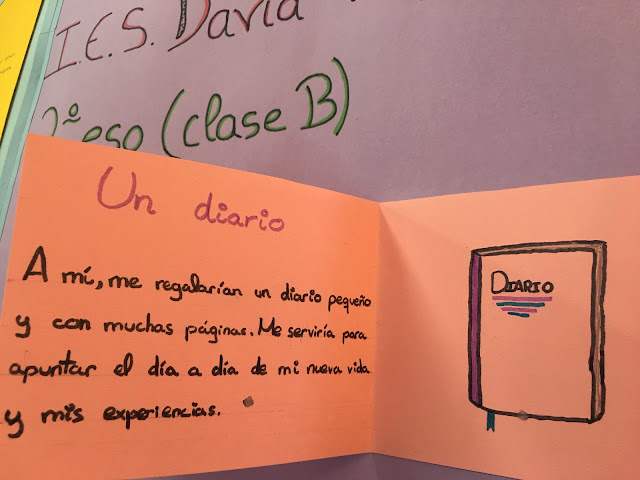 I.E.S. David
2º eso (clase B)
Un diario
A mí, me regalarían un diario pequeño
y con muchas páginas. Me serviría para
apuntar el día a día de mi nueva vida
y mis experiencias.
DIARIO